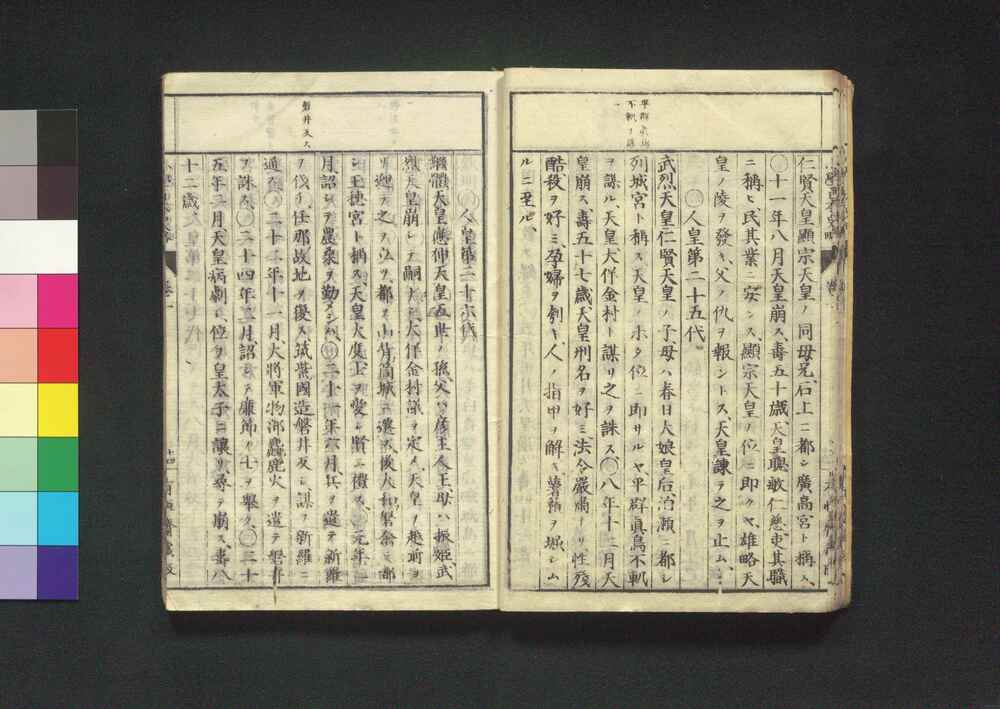 仁賢天皇顯宗天皇ノ同母兄石上ニ都シ廣高宮ト稱ス
〇十一年八月天皇崩ス、壽五十歳、天皇聰敏仁慈、吏其職
ニ稱ヒ、民其業ニ安ンス、顯宗天皇ノ位ニ即クヤ、雄略天
皇ノ陵ヲ發キ、父ノ仇ヲ報ントス、天皇諫テ之ヲ止ム
〇人皇第二十五代
武烈天皇仁賢天皇ノ子、母ハ春日大娘皇后、泊瀬ニ都シ
列城宮ト稱ス天皇ノ未タ位ニ即サルヤ平群眞鳥不軌
ヲ謀ル、天皇大伴金村ト謀リ之ヲ誅ス、〇八年十二月天
皇崩ス、壽五十七歳天皇刑名ヲ好ミ、法令嚴肅ナリ性殘
酷殺ヲ好ミ、孕婦ヲ刳キ、人ノ指甲ヲ解キ薯蕷ヲ堀シム
ルニ至ル、
〇人皇第二十六代
繼體天皇應神天皇五世ノ孫、父ハ彦主人王、母ハ振姫、武
烈天皇崩シテ嗣ナシ大伴金村議ヲ定メ、天皇ヲ越前ヨ
リ迎テ之ヲ立ツ、都ヲ山背筒城ニ遷ス後大和磐余ニ都
シ玉穂宮ト稱ス、天皇大度士ヲ愛シ賢ニ禮ス、〇元年三
月詔シテ農桑ヲ勤メシム、〇二十一年六月、兵ヲ遣テ新羅
ヲ伐チ、任那故地ヲ復ス、筑紫國造磐井反シ、謀ヲ新羅ニ
通ス、〇二十二年十一月、大將軍物部麤鹿火ヲ遣テ磐井
ヲ誅ス、〇二十四年二月、詔シテ廉節ノ士ヲ擧ク、〇二十
五年二月、天皇病劇シ、位ヲ皇太子ニ讓リ尋テ崩ス、壽八
十二歳、
磐井反ス